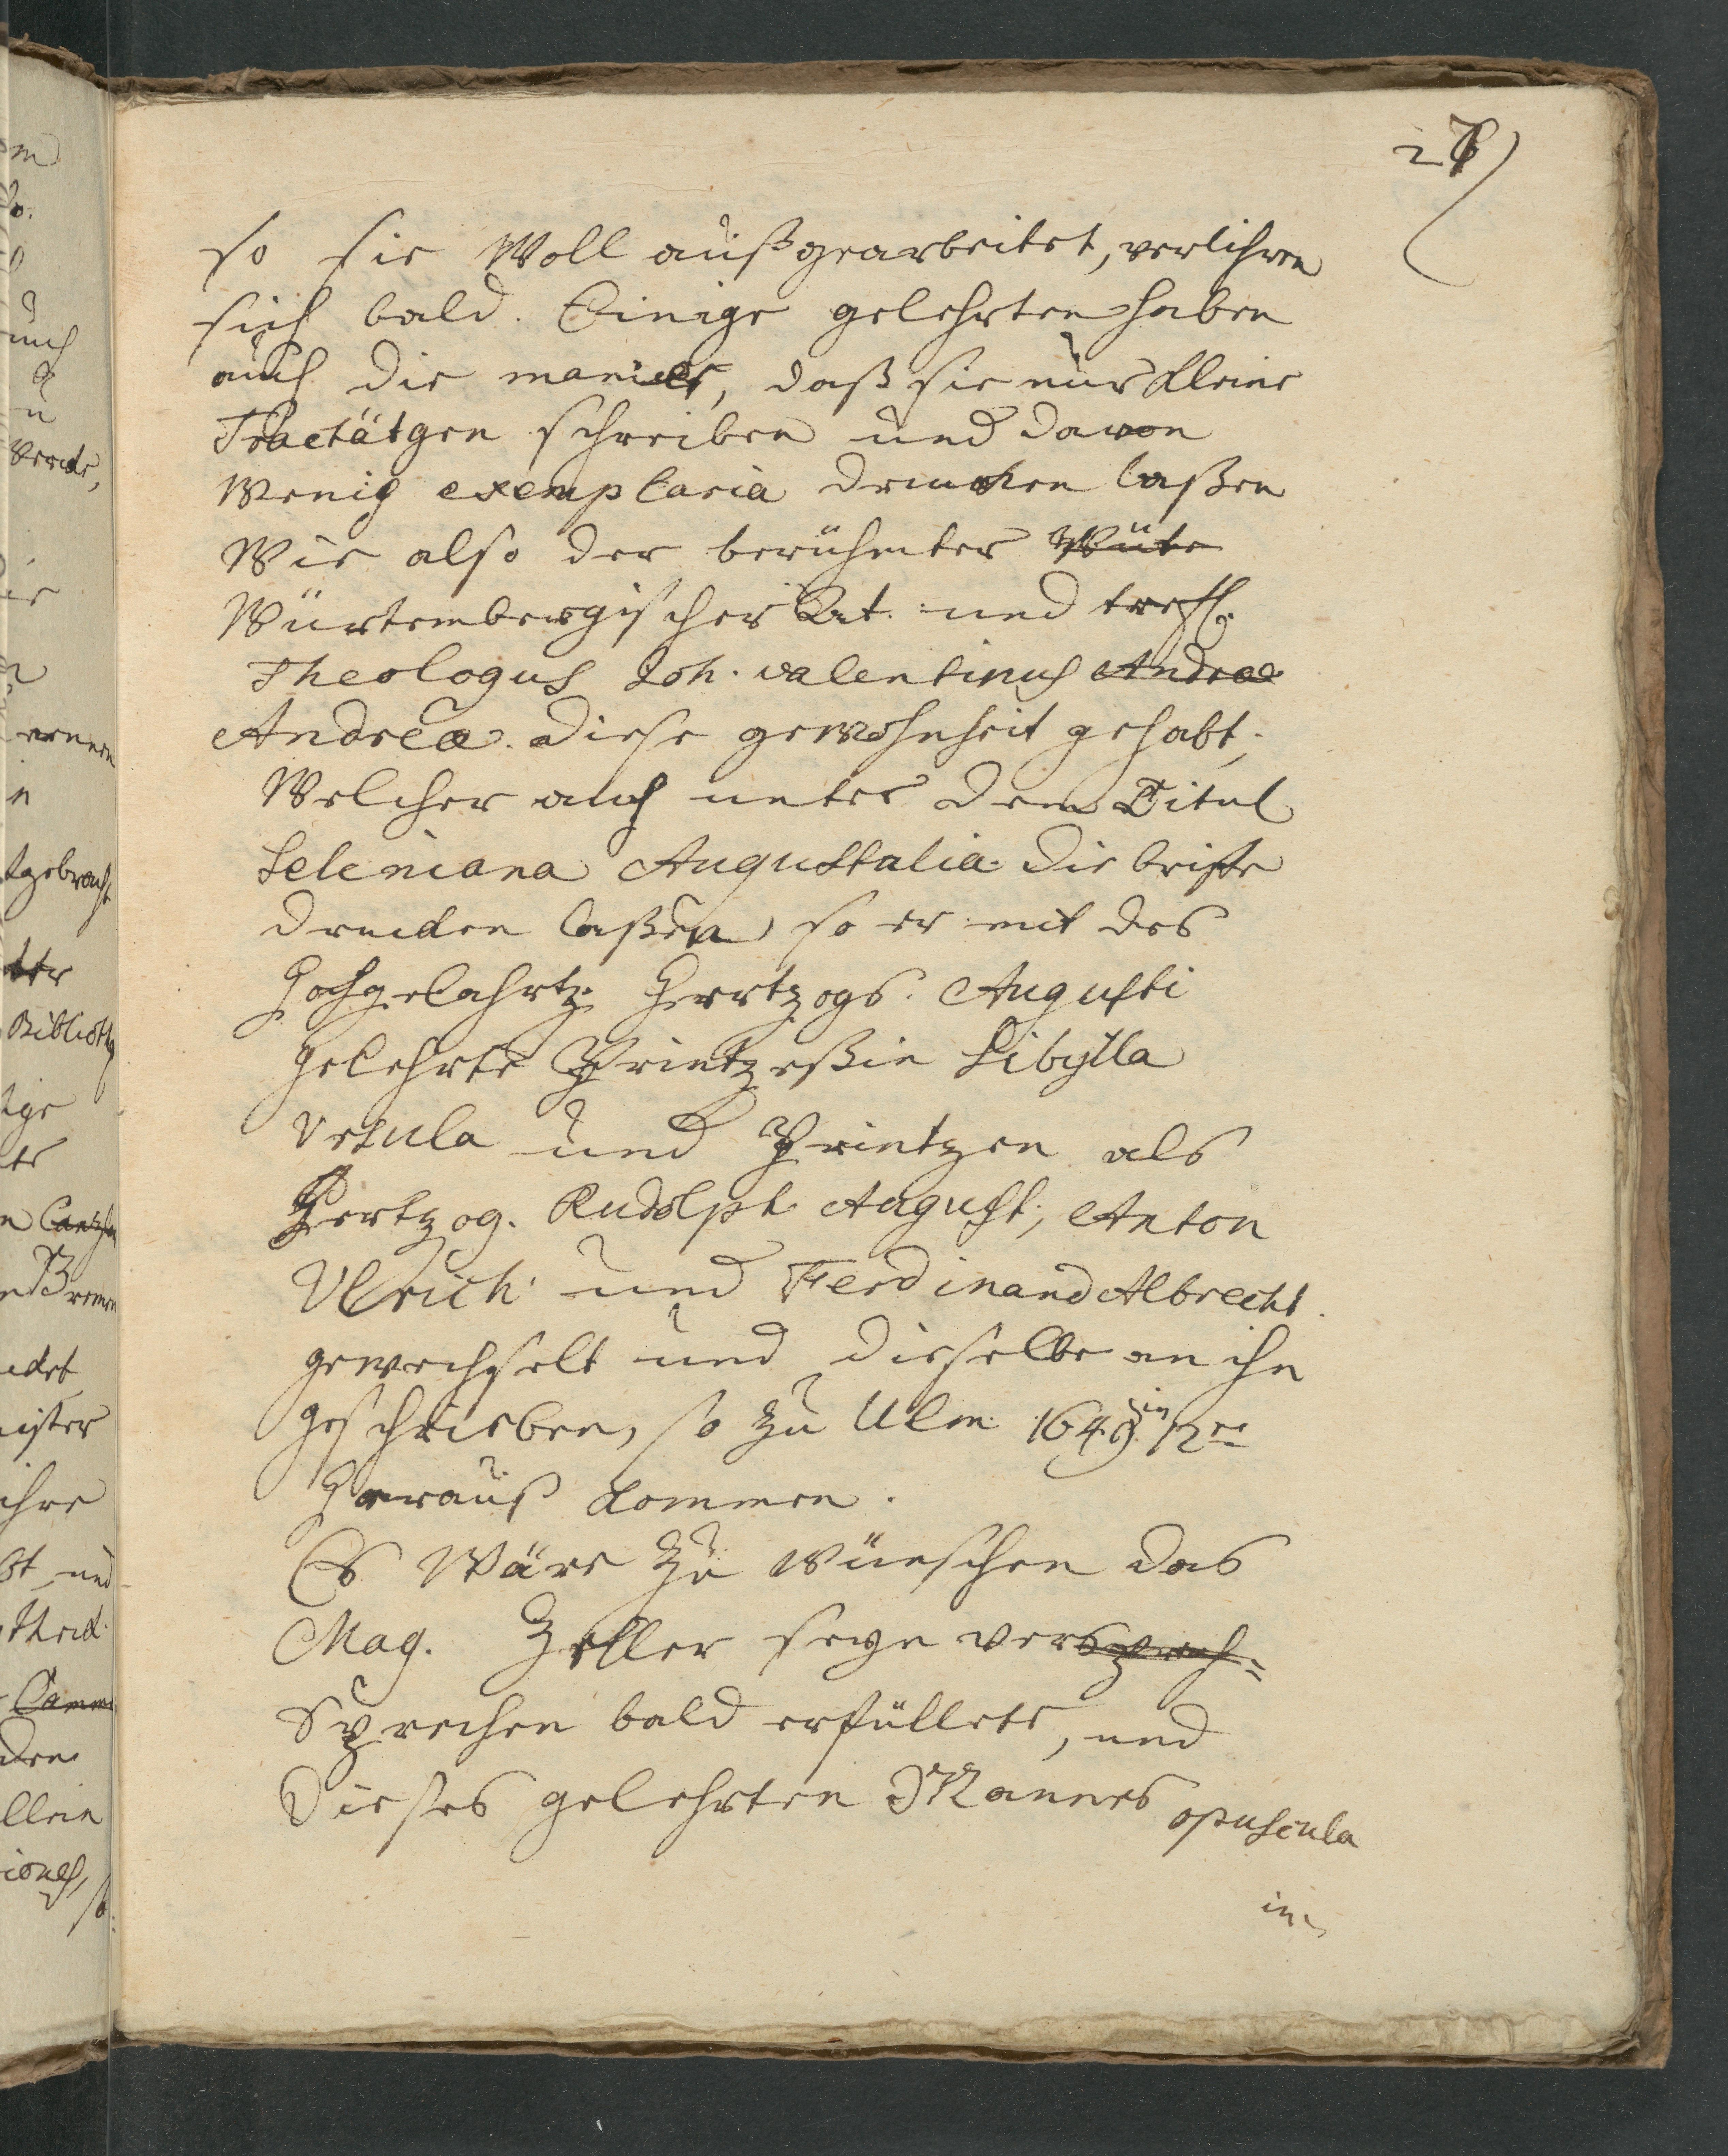 27)
so sie Woll außgearbeitet, verlihren
sich bald. Einige gelehrten haben
auch die manier, daß sie nur Kleine
Tractätgen schreiben und davon
Wenig exemplaria drucken laßen
Wie also der berühmter Würte
Würtembergischer Rat. und treffl.
Theologus Joh. valentinus Andreæ
Andreæ. diese gewohnheit gehabt,
Welcher auch unter dem Titul
Seleniana Augustalia die briefe
drucken laßen, so er mit des
Hochgelahrt. Hertzogs. Augusti
gelehrte Printzeßin Sibylla
Ursula und Printzen als
Hertzog. Rudolph August, Anton
Ulrich und Ferdinand Albrecht.
gewechselt und dieselbe an ihn
geschrieben, so zu Ulm 1649 in 12.
Herauß kommen.
Es Wäre zu wünschen das
Mag. Zeller seyn versprech=
Sprechen bald erfüllete, und
Dieses gelehrten Mannes opuscula
in